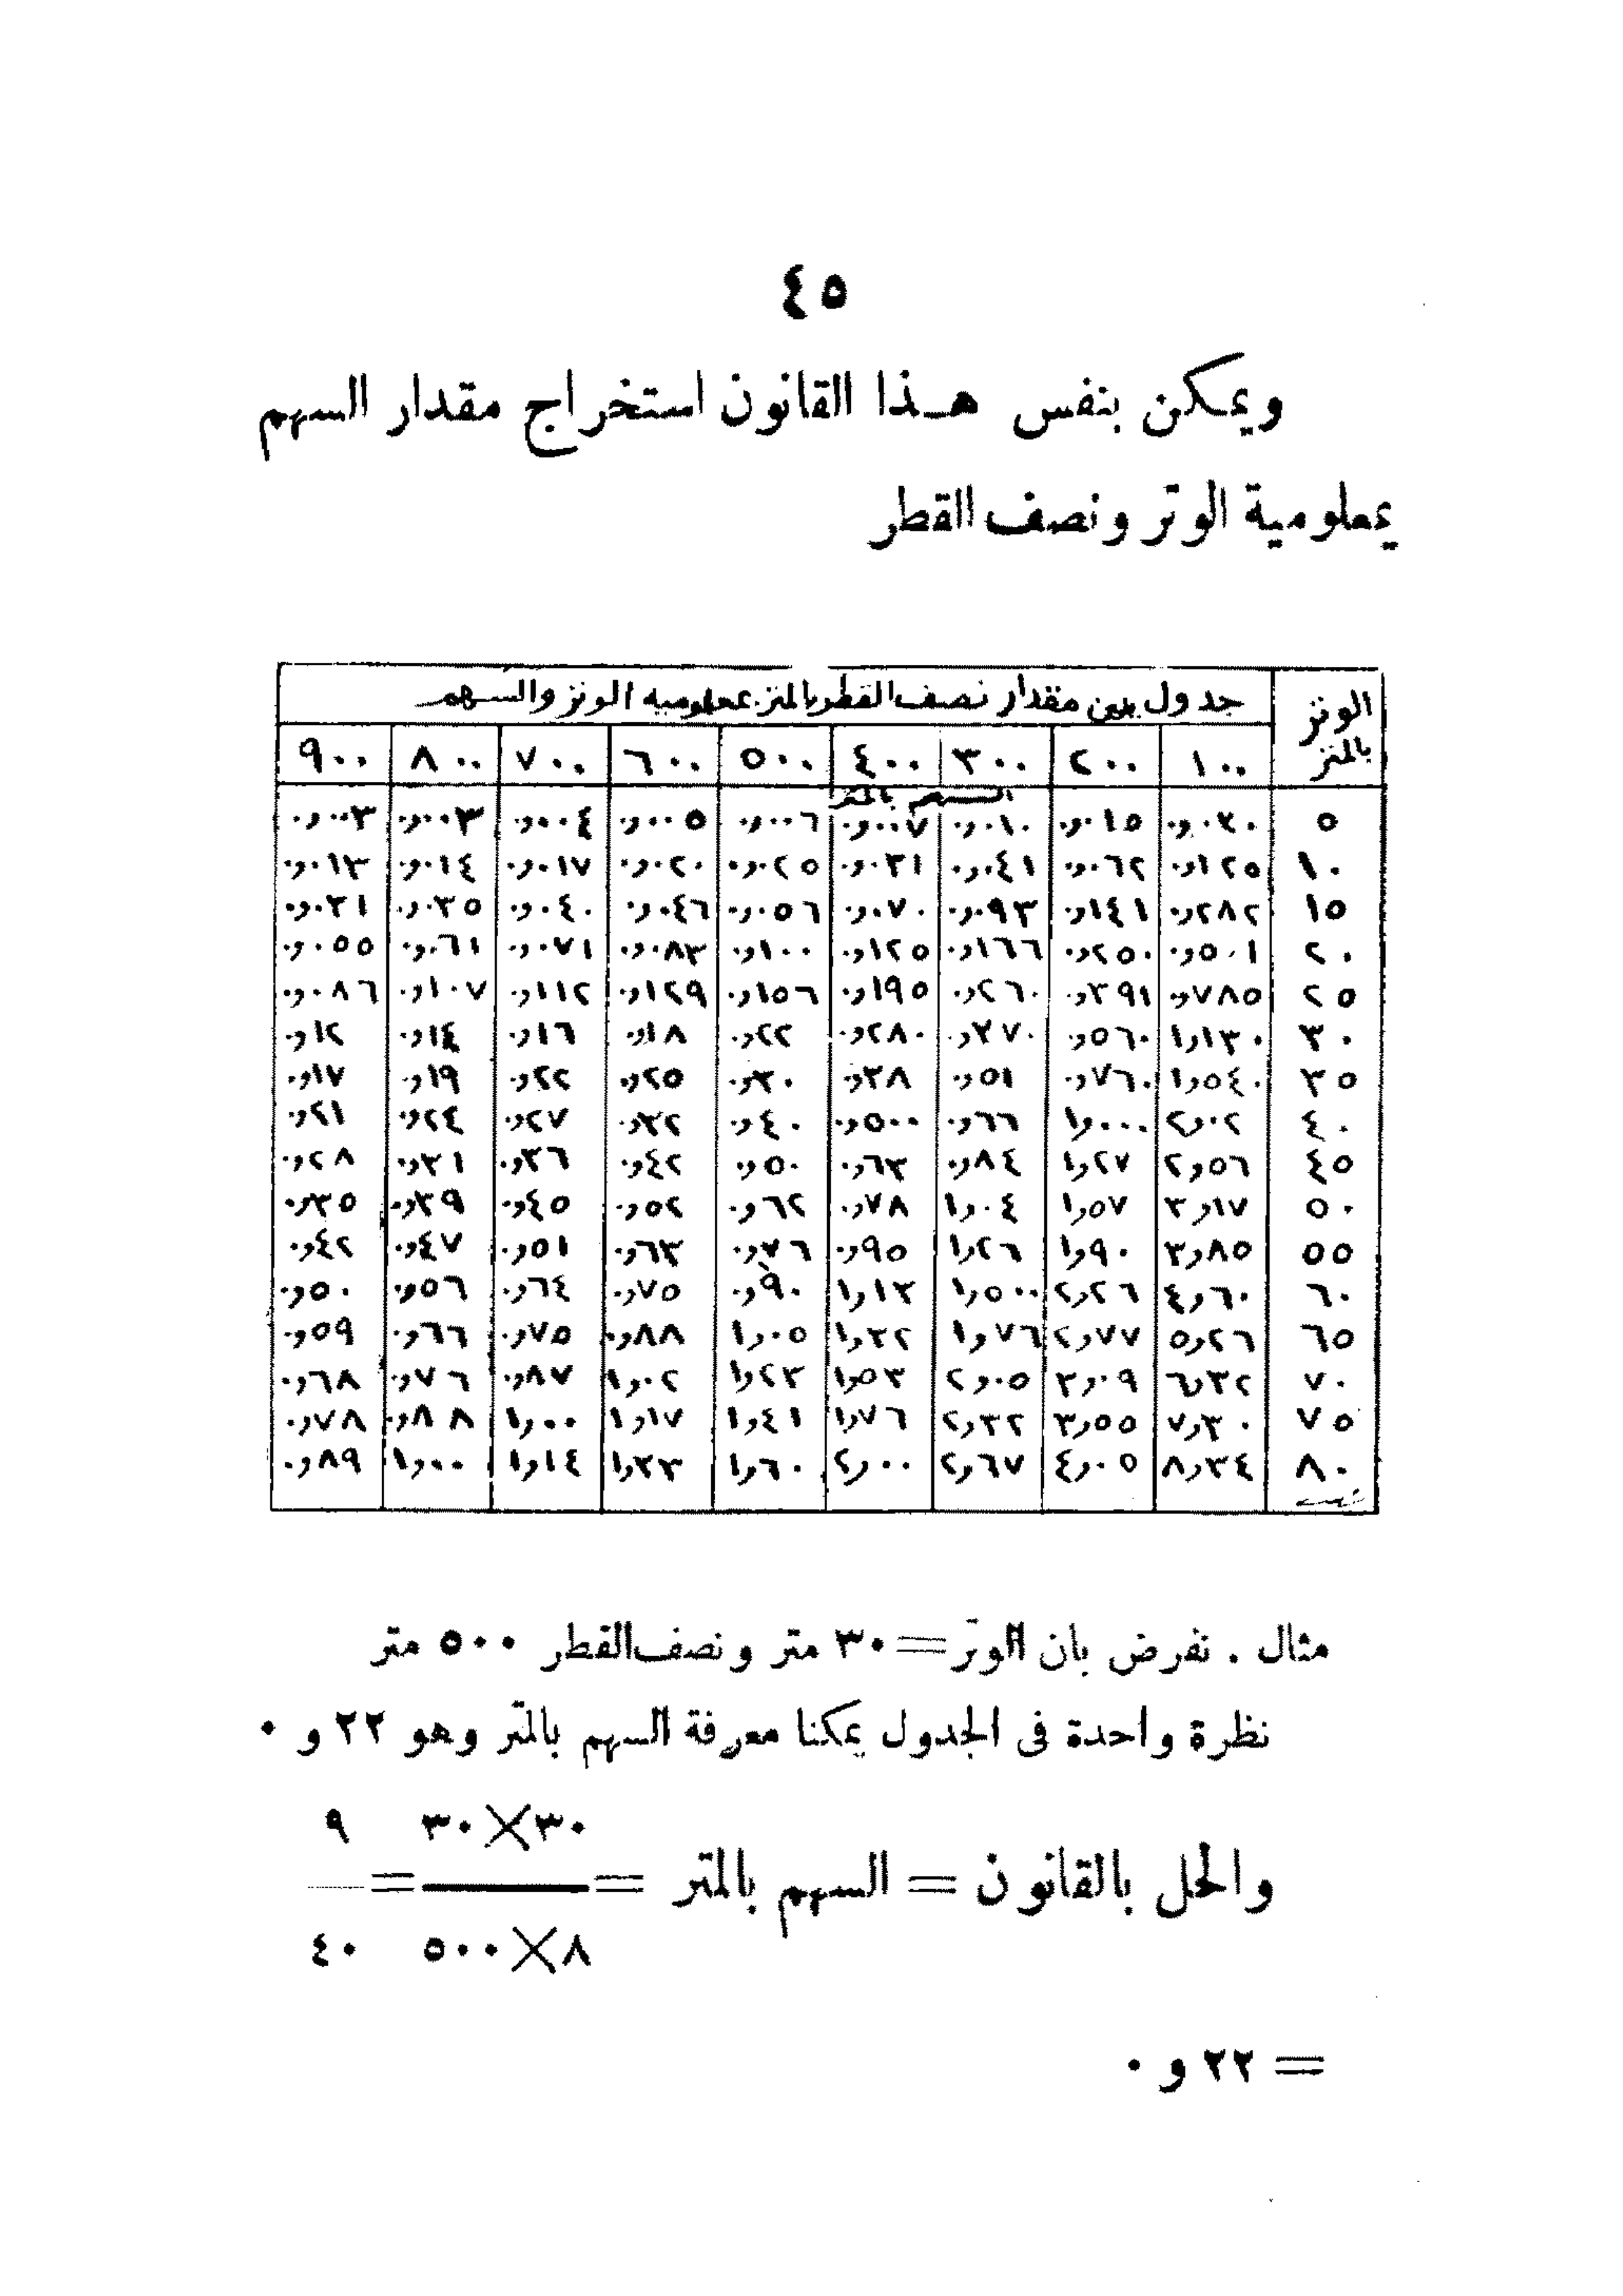 ٤٥
ويمكن بنفس هـذا القانون استخراج مقدار السهم
بمعلومية الوتر ونصف القطر
جدول يبين مقدار نصف القطر بالمتر بمعلومية الوتر والسهم
الوتر بالمتر ١٠٠ ٢٠٠ ٣٠٠ ٤٠٠ ٥٠٠ ٦٠٠ ٧٠٠ ٨٠٠ ٩٠٠
السهم بالمتر
٥ ٠,٠٣٠ ٠,٠١٥ ٠,٠١٠ ٠,٠٠٧ ٠,٠٠٦ ٠,٠٠٥ ٠,٠٠٤ ٠,٠٠٣ ٠,٠٠٣
١٠ ٠,١٢٥ ٠,٠٦٢ ٠,٠٤١ ٠,٠٣١ ٠,٠٢٥ ٠,٠٢٠ ٠,٠١٧ ٠,٠١٤ ٠,٠١٣
١٥ ٠,٢٨٢ ٠,١٤١ ٠,٠٩٣ ٠,٠٧٠ ٠,٠٥٦ ٠,٠٤٦ ٠,٠٤٠ ٠,٠٣٥ ٠,٠٣١
٢٠ ٠,٥٠١ ٠,٢٥٠ ٠,١٦٦ ٠,١٢٥ ٠,١٠٠ ٠,٠٨٣ ٠,٠٧١ ٠,٠٦١ ٠,٠٥٥
٢٥ ٠,٧٨٥ ٠,٣٩١ ٠,٢٦٠ ٠,١٩٥ ٠,١٥٦ ٠,١٢٩ ٠,١١٢ ٠,١٠٧ ٠,٠٨٦
٣٠ ١,١٣٠ ٠,٥٦٠ ٠,٣٧٠ ٠,٢٨٠ ٠,٢٢ ٠,١٨ ٠,١٦ ٠,١٤ ٠,١٢
٣٥ ١,٥٤٠ ٠,٧٦٠ ٠,٥١ ٠,٣٨ ٠,٣٠ ٠,٢٥ ٠,٢٢ ٠,١٩ ٠,١٧
٤٠ ٢,٠٢ ١,٠٠٠ ٠,٦٦ ٠,٥٠٠ ٠,٤٠ ٠,٣٢ ٠,٢٧ ٠,٢٤ ٠,٢١
٤٥ ٢,٥٦ ١,٢٧ ٠,٨٤ ٠,٦٣ ٠,٥٠ ٠,٤٢ ٠,٣٦ ٠,٣١ ٠,٢٨
٥٠ ٣,١٧ ١,٥٧ ١,٠٤ ٠,٧٨ ٠,٦٢ ٠,٥٢ ٠,٤٥ ٠,٣٩ ٠,٣٥
٥٥ ٣,٨٥ ١,٩٠ ١,٢٦ ٠,٩٥ ٠,٧٦ ٠,٦٣ ٠,٥١ ٠,٤٧ ٠,٤٢
٦٠ ٤,٦٠ ٢,٢٦ ١,٥٠٠ ١,١٣ ٠,٩٠ ٠,٧٥ ٠,٦٤ ٠,٥٦ ٠,٥٠
٦٥ ٥,٢٦ ٢,٧٧ ١,٧٦ ١,٣٢ ١,٠٥ ٠,٨٨ ٠,٧٥ ٠,٦٦ ٠,٥٩
٧٠ ٦,٣٢ ٣,٠٩ ٢,٠٥ ١,٥٣ ١,٢٣ ١,٠٢ ٠,٨٧ ٠,٧٦ ٠,٦٨
٧٥ ٧,٣٠ ٣,٥٥ ٢,٣٢ ١,٧٦ ١,٤١ ١,١٧ ١,٠٠ ٠,٨٨ ٠,٧٨
٨٠ ٨,٣٤ ٤,٠٥ ٢,٦٧ ٢,٠٠ ١,٦٠ ١,٣٣ ١,١٤ ١,٠٠ ٠,٨٩
مثال . نفرض بان الوتر = ٣٠ متر ونصف القطر ٥٠٠ متر
نظرة واحدة فى الجدول يمكنا معرفة السهم بالمتر وهو ٢٢ و ٠
٣٠×٣٠ ٩
والحل بالقانون = السهم بالمتر = ــــ = ــــ
٨×٥٠٠ ٤٠
= ٢٢ و ٠